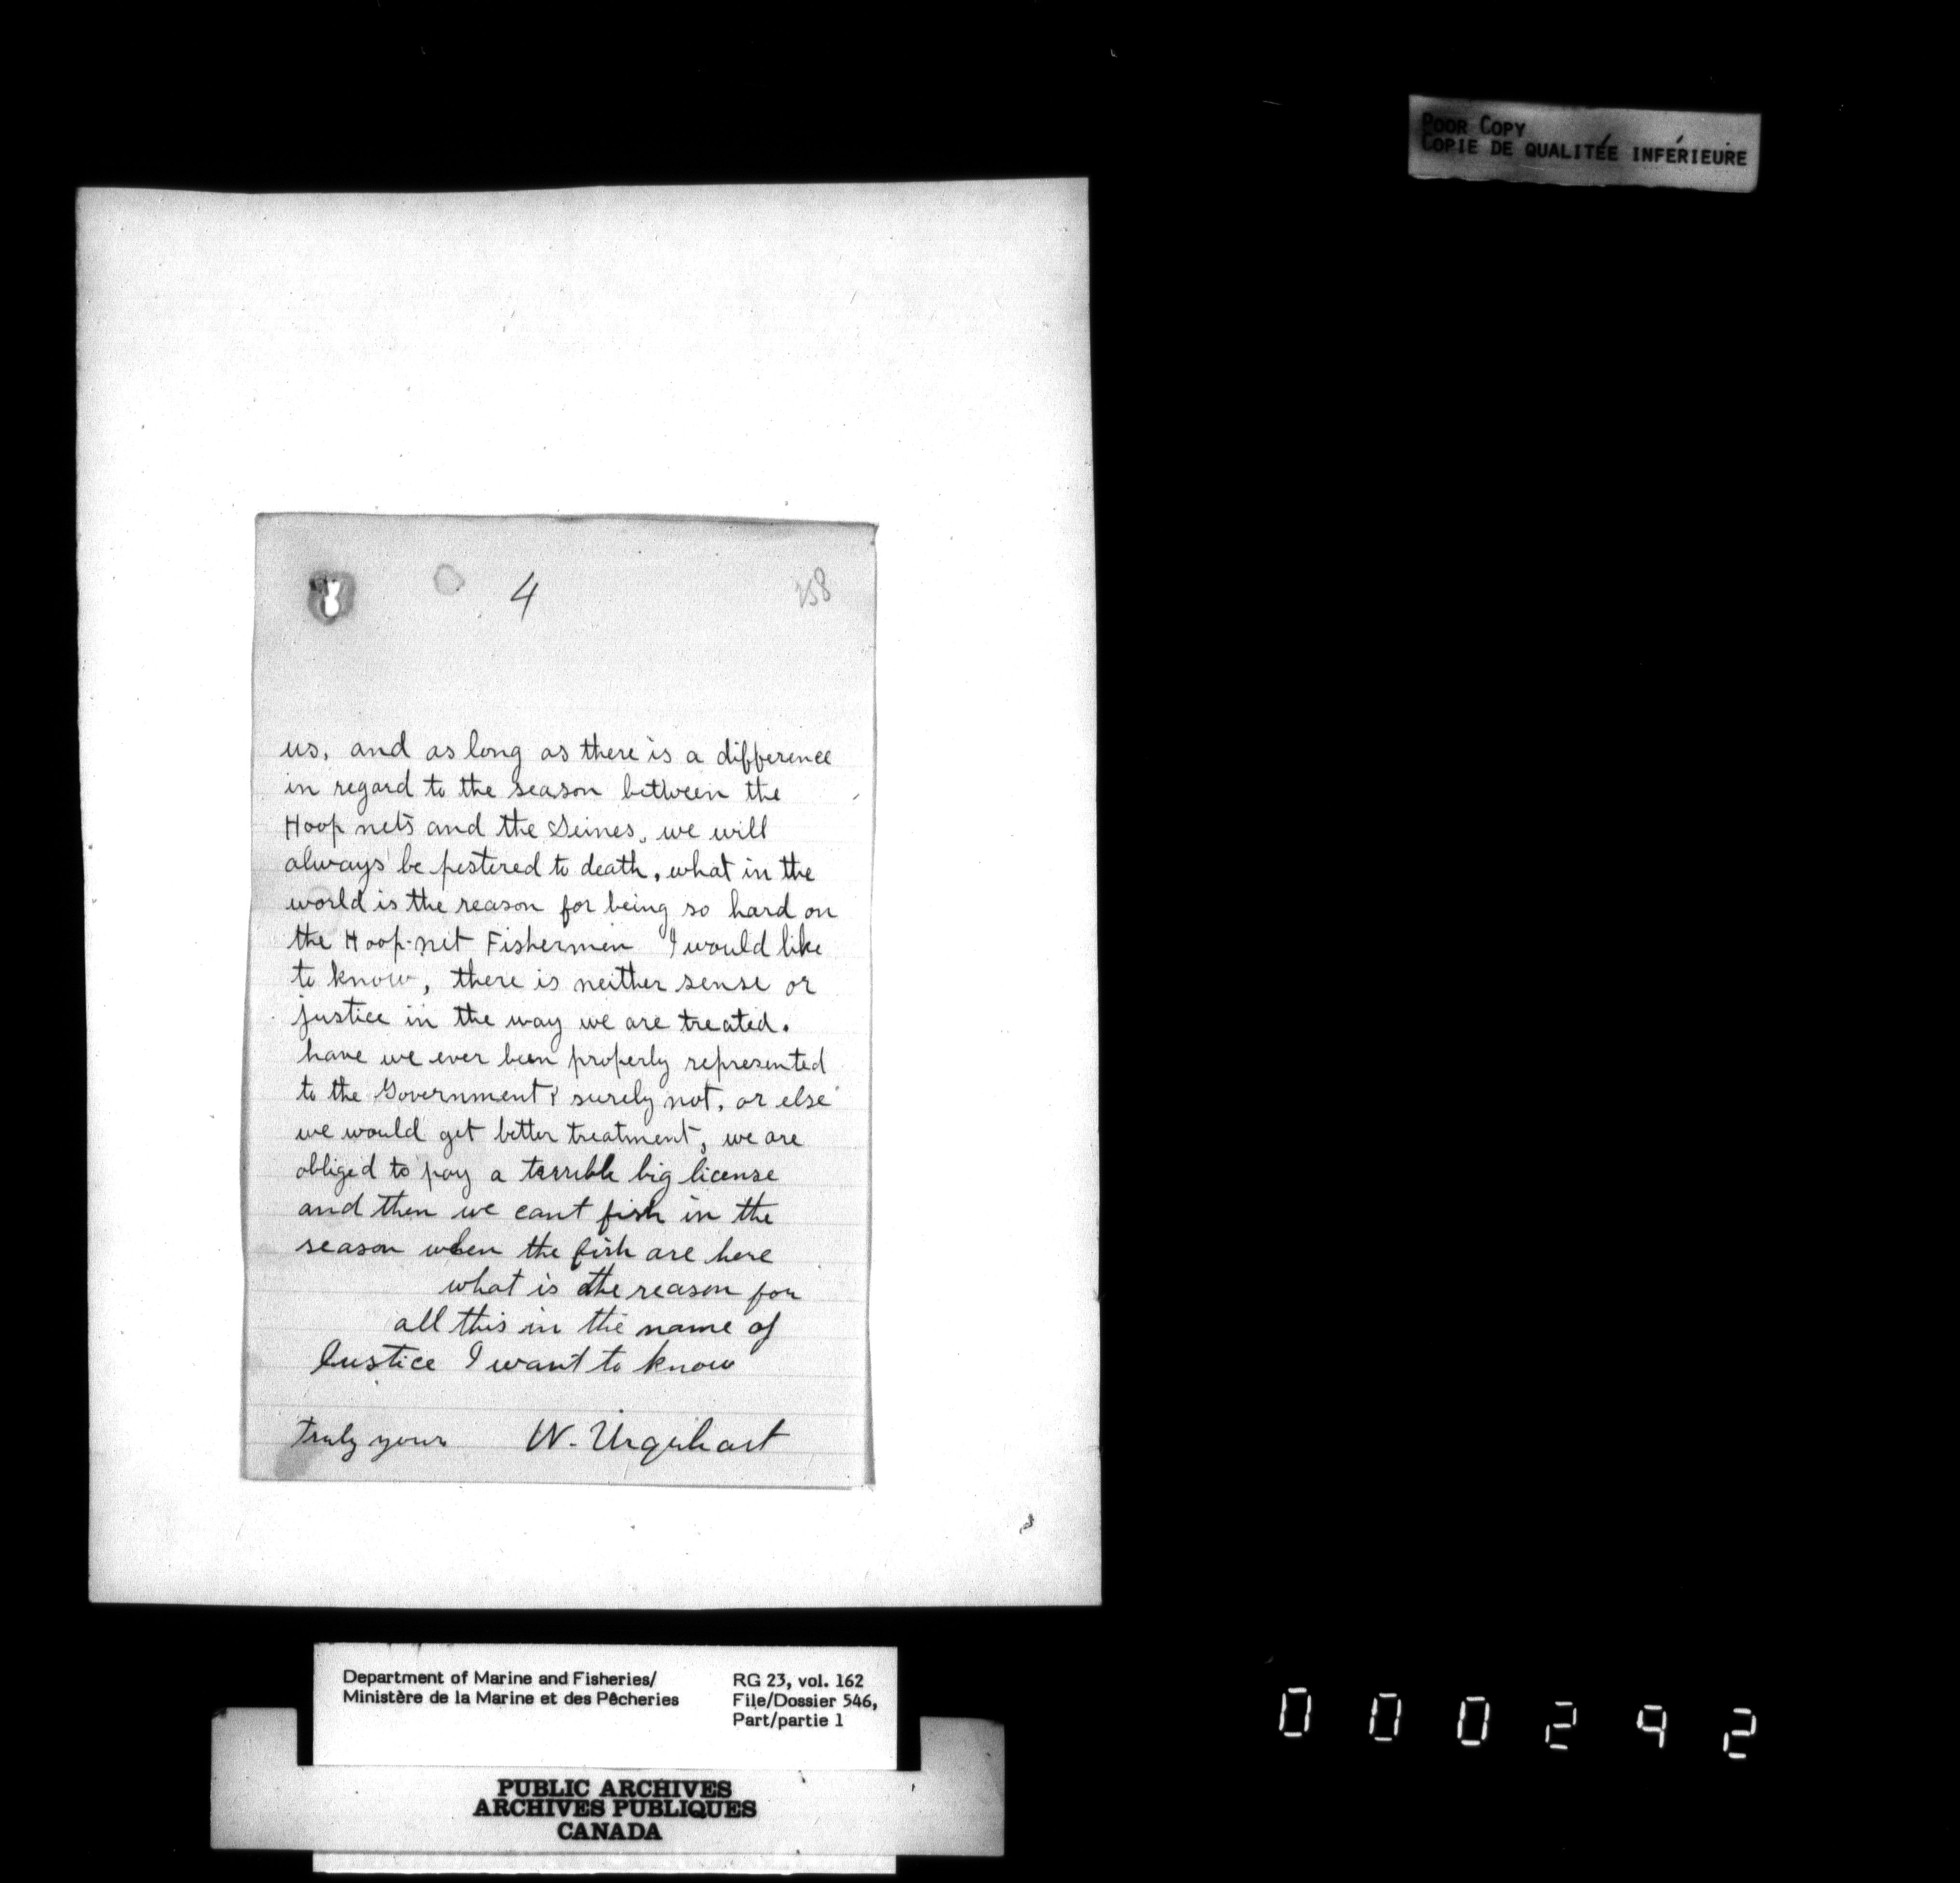 POOR COPY
COPIE DE QUALITÉE INFÉRIEURE
4
258
us, and as long as there is a difference
in regard to the season between the
Hoop nets and the Seines, we will
always be pestered to death, what in the
world is the reason for being so hard on
the Hoop-net Fishermen I would like
to know, there is neither sense or
justice in the way we are treated.
have we ever been properly represented
to the Government? surely not, or else
we would get better treatment, we are
obliged to pay a terrible big license
and then we cant fish in the
season when the fish are here
what is the reason for
all this in the name of
Justice I want to know
Truly yours W. Urquhart
Department of Marine and Fisheries/
Ministère de la Marine et des Pêcheries
RG 23, vol. 162
File/Dossier 546,
Part/partie 1
PUBLIC ARCHIVES
ARCHIVES PUBLIQUES
CANADA
000292